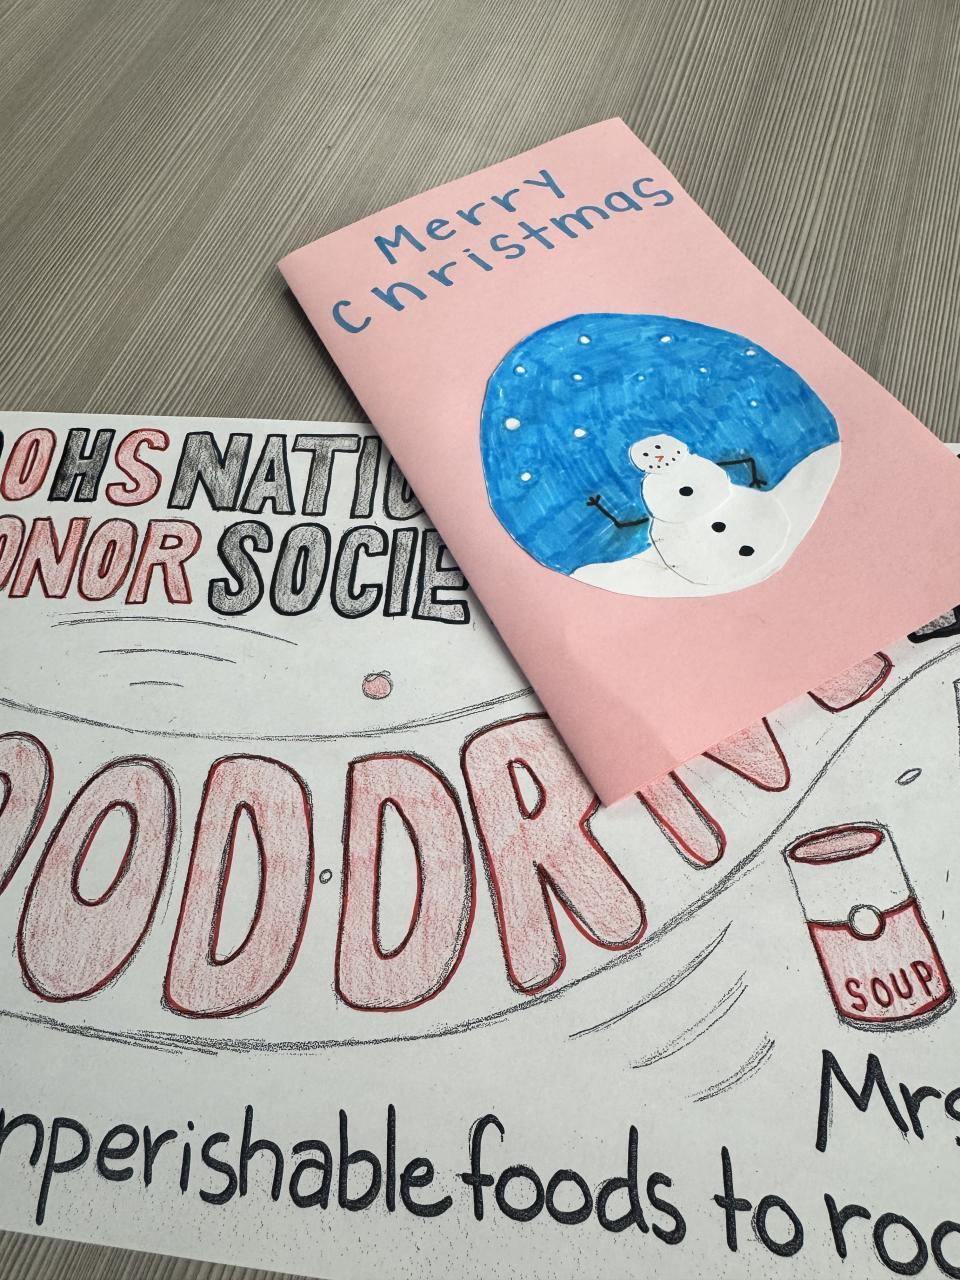 Merry
Christmas
OHS NATIO
ONOR SOCIE
OOD DRIV
SOUP
Mrs
nperishable foods to roo